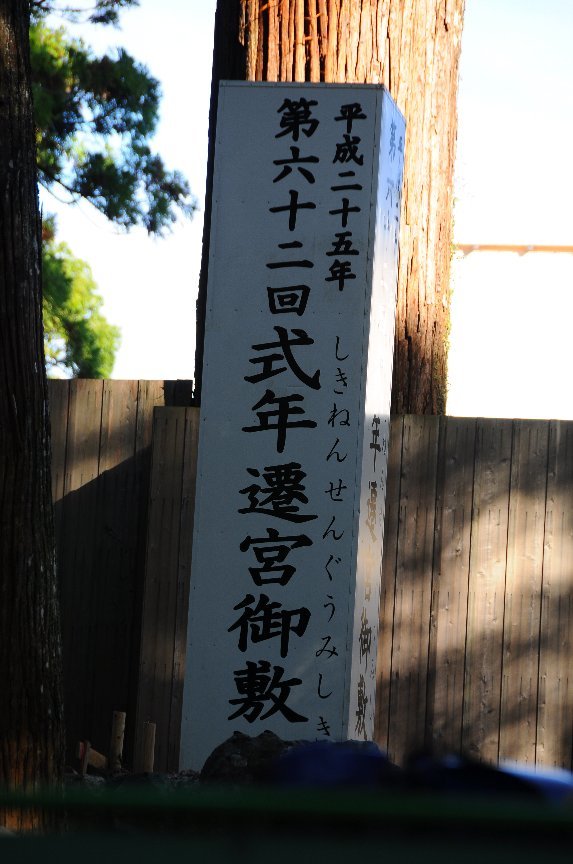 平成二十五年
第六十二回式年遷宮御敷
しきねんせんぐうみしき
年遷宮御敷